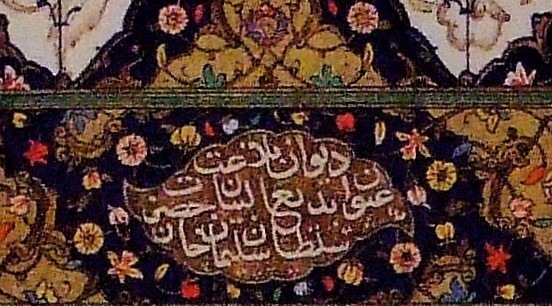 ديوان بلاغت
عنوان بديع البيان حضرت
سلطان سليمان خان